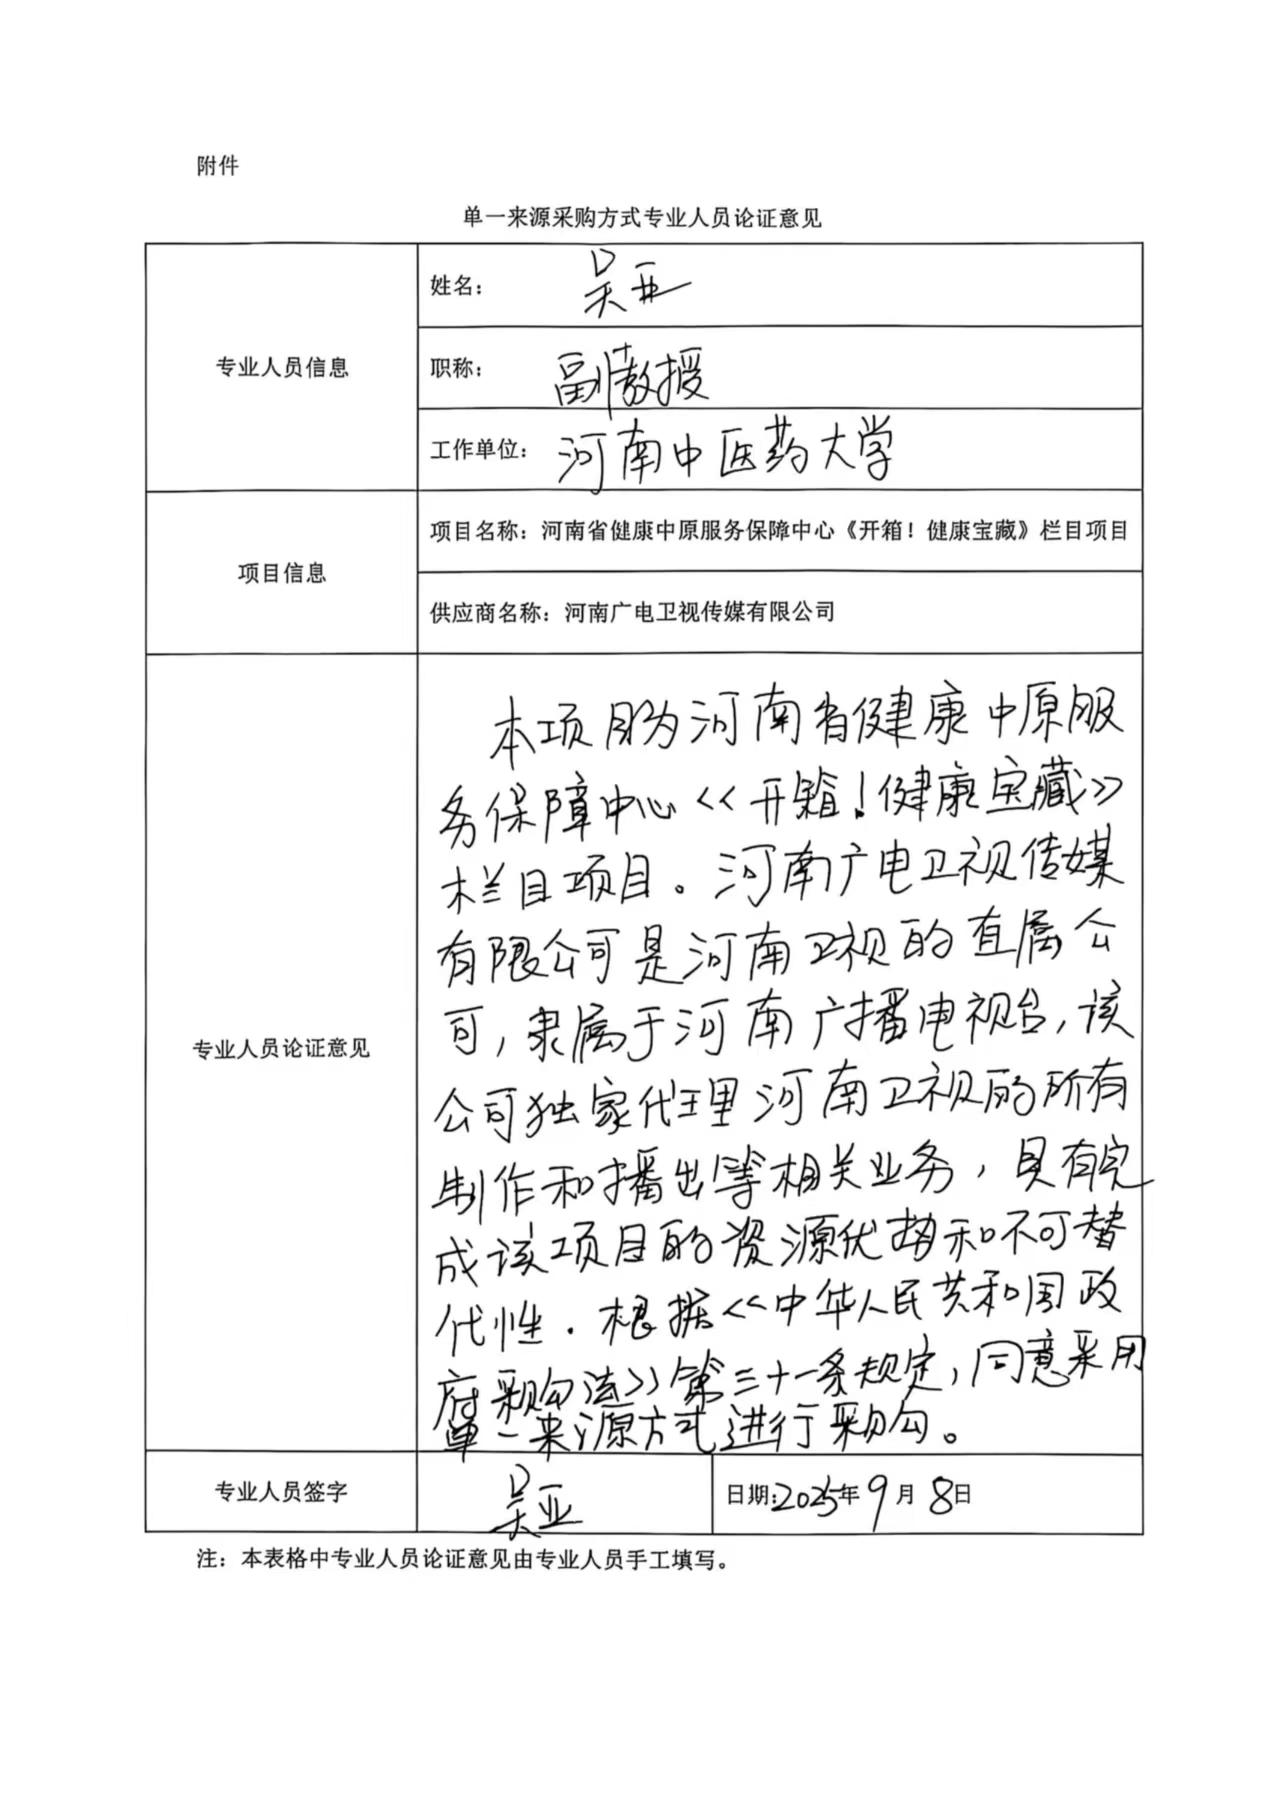 附件
单一来源采购方式专业人员论证意见
专业人员信息
姓名： 吴亚
职称： 副教授
工作单位： 河南中医药大学
项目信息
项目名称：河南省健康中原服务保障中心《开箱！健康宝藏》栏目项目
供应商名称：河南广电卫视传媒有限公司
专业人员论证意见
本项目为河南省健康中原服
务保障中心《开箱！健康宝藏》
栏目项目。河南广电卫视传媒
有限公司是河南卫视的直属公
司，隶属于河南广播电视台，该
公司独家代理河南卫视的所有
制作和播出等相关业务，具有完
成该项目的资源优势和不可替
代性．根据《中华人民共和国政
府采购法》第三十一条规定，同意采用
单一来源方式进行采购。
专业人员签字
吴亚
日期：2025年9月8日
注：本表格中专业人员论证意见由专业人员手工填写。